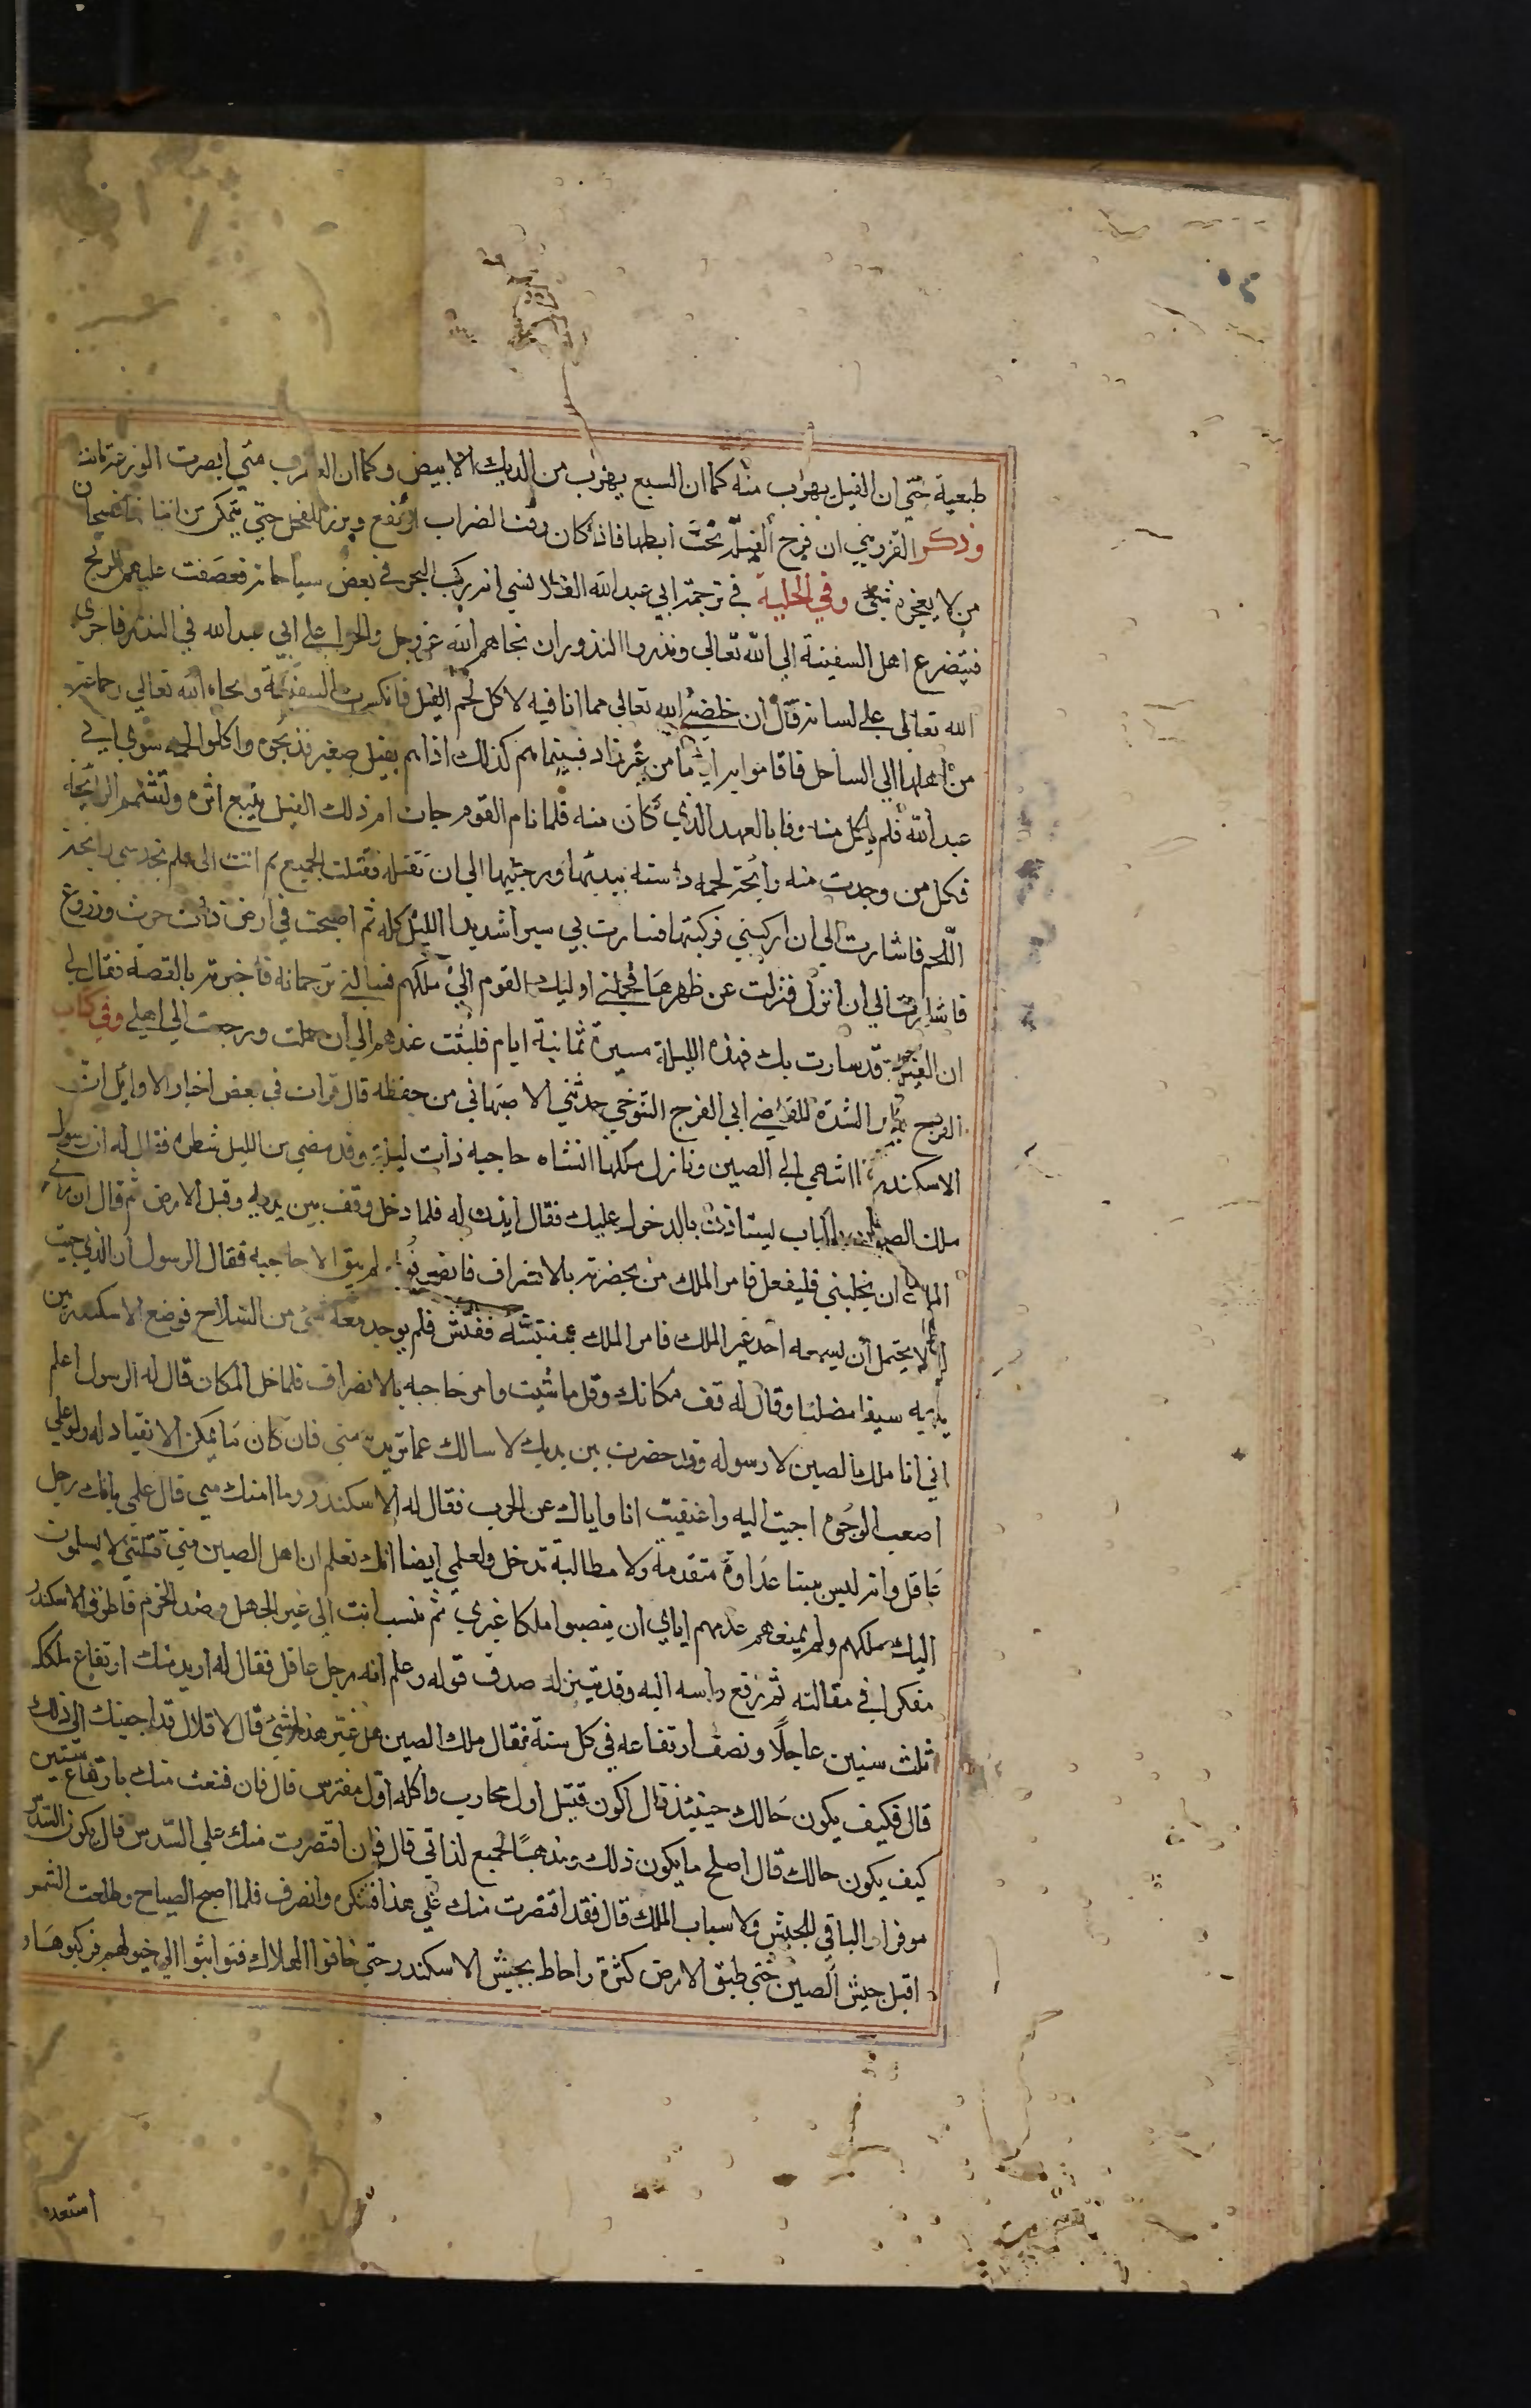 طبعية حتى ان الفيل يهرب منه كما ان السبع يهرب من الديك الابيض وكما ان العقرب متي ابصرت الوزغة ماتت
وذكر القزويني ان فرج الفيلة تحت ابطها فاذا كان وقت الضراب ارتفع وبرز للفحل حتى يتمكن من اتيانها فسبحان
من لا يعجزه شي وفي الحلية في ترجمة ابي عبد الله القلانسي انه ركب البحر في بعض سياحاته فعصفت عليهم الريح
فتضرع اهل السفينة الي الله تعالى ونذروا النذور ان نجاهم الله عز وجل والحوا على ابي عبد الله في النذر فاجرى
الله تعالى على لسانه قال ان خلصني الله تعالى مما انا فيه لا اكل لحم الفيل فانكسرت السفينة ونجاه الله تعالى وجماعة
من اهلها الي الساحل فاقاموا به اياما من غير زاد فبينما هم كذلك اذا هم بفيل صغير فذبحوه واكلوا لحمه سوى ابي
عبد الله فلم ياكل منه وفا بالعهد الذي كان منه فلما نام القوم جات ام ذلك الفيل تتبع اثره وتشمم الرائحة
فكل من وجدت منه رايحة لحمه داسته بيديها ورجليها الي ان تقتله فقتلت الجميع ثم اتت الي فلم تجد مني رايحة
اللحم فاشارت الي ان اركبني فركبتها فسارت بي سيرا شديدا الليل كله ثم اصبحت في ارض ذات حرث وزروع
فاشارت الي ان انزل فنزلت عن ظهرها فحملني اوليك القوم الي ملكهم فسالني ترجمانه فاخبرته بالقصة فقال لي
ان الفيلة قد سارت بك هذه الليلة مسيرة ثمانية ايام فلبثت عندهم الي ان حملت ورجعت الي اهلي وفي كتاب
الفرج بعد الشدة للقاضي ابي الفرج التنوخي حدثني الاصبهاني من حفظه قال قرات في بعض اخبار الاوايل ان
الاسكندر لما انتهى الي الصين ونازل ملكها اتاه حاجبه ذات ليلة وقد مضي من الليل شطره فقال له ان رسول
ملك الصين بالباب يستاذن بالدخول عليك فقال ايذن له فلما دخل وقف بين يديه وقبل الارض ثم قال ان راي
الملك ان يخليني فليفعل فامر الملك من بحضرته بالانصراف فانصرفوا ولم يبق الا حاجبه فقال الرسول ان الذي جيت
له لا يحتمل ان يسمعه احد غير الملك فامر الملك بتفتيشه ففتش فلم يوجد معه شي من السلاح فوضع الاسكندر بين
يديه سيفا مصلتا وقال له قف مكانك وقل ما شيت وامر حاجبه بالانصراف فلما خلى المكان قال له الرسول اعلم
اني انا ملك الصين لا رسوله وقد حضرت بين يديك لاسالك عما تريد مني فان كان مما يمكن الانقياد له ولو علي
اصعب الوجوه اجبت اليه واغنيت انا واياك عن الحرب فقال له الاسكندر وما امنك مني قال علمي بانك رجل
عاقل وانه ليس بيننا عداوة متقدمة ولا مطالبة تدخل ولعلمي ايضا انك تعلم ان اهل الصين متي قتلتني لا يسلمون
اليك ملكهم ولم يمنعهم عدمهم اياي ان ينصبوا ملكا غيري ثم تنسب انت الي غير الجهل وضد الحزم فاطرق الاسكندر
مفكرا في مقالته ثم رفع راسه اليه وقد تبين له صدق قوله وعلم انه رجل عاقل فقال له اريد منك ارتفاع ملكك
ثلث سنين عاجلا ونصف ارتفاعه في كل سنة فقال ملك الصين هل غير هذا شي قال لا قال قد اجبتك الي ذلك
قال فكيف يكون حالك حينيذ قال اكون قتيل اول محارب واكلة اول مفترس قال فان قنعت منك بارتفاع سنتين
كيف يكون حالك قال اصلح ما يكون ذلك ومذهبا لجميع لذاتي قال فان اقتصرت منك علي السدس قال يكون السدس
موفرا والباقي للجيش ولاسباب الملك قال فقد اقتصرت منك علي هذا فشكره وانصرف فلما اصبح الصباح وطلعت الشمس
اقبل جيش الصين حتى طبق الارض كثرة واحاط بجيش الاسكندر حتى خافوا الهلاك فتواثبوا الي خيولهم فركبوها و
استعدوا